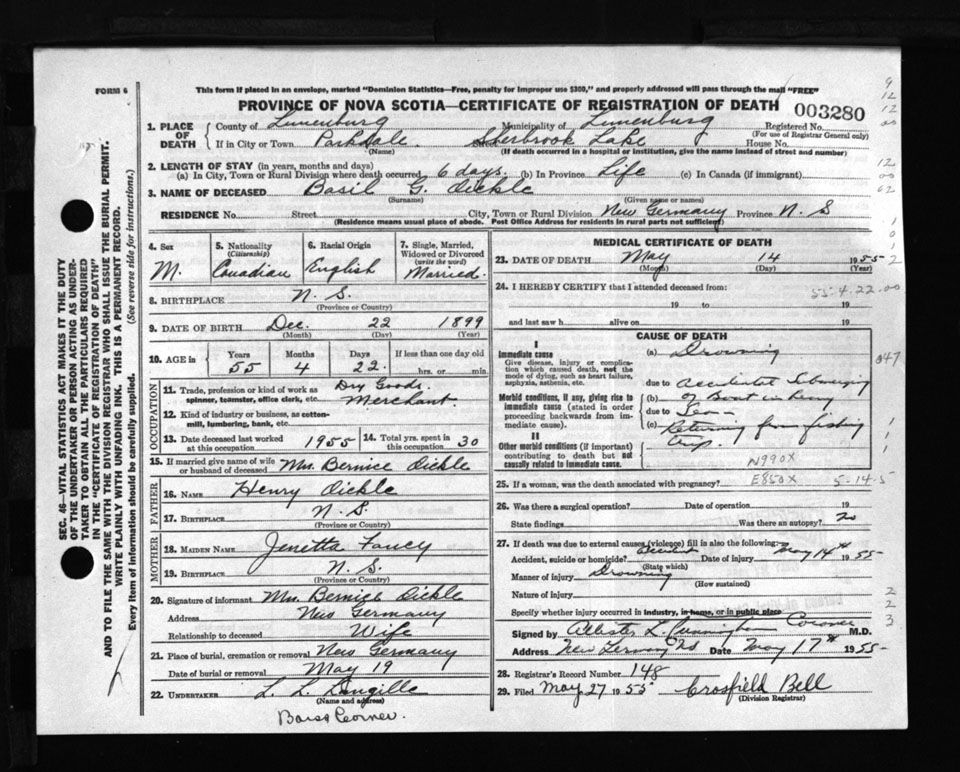 FORM 6
This form if placed in an envelope, marked "Dominion Statistics—Free, penalty for improper use $300," and properly addressed will pass through the mail "FREE"
PROVINCE OF NOVA SCOTIA—CERTIFICATE OF REGISTRATION OF DEATH 003280
1. PLACE OF DEATH
County of Lunenburg Municipality of Lunenburg Registered No.
(For use of Registrar General only)
If in City or Town Parkdale. Sherbrook Lake House No.
(Name) (If death occurred in a hospital or institution, give the name instead of street and number)
2. LENGTH OF STAY (in years, months and days)
(a) In City, Town or Rural Division where death occurred 6 days. (b) In Province Life (c) In Canada (if immigrant)
3. NAME OF DECEASED Basil G. Oickle
(Surname) (Given name or names)
RESIDENCE No. Street City, Town or Rural Division New Germany Province N. S
(Residence means usual place of abode. Post Office Address for residents in rural parts not sufficient)
4. Sex M.
5. Nationality (Citizenship) Canadian
6. Racial Origin English
7. Single, Married, Widowed or Divorced (write the word) Married.
8. BIRTHPLACE N. S.
(Province or Country)
9. DATE OF BIRTH Dec. 22 1899
(Month) (Day) (Year)
10. AGE in Years Months Days If less than one day old
55 4 22. hrs. or min.
OCCUPATION
11. Trade, profession or kind of work as spinner, teamster, office clerk, etc. Dry Goods Merchant.
12. Kind of industry or business, as cotton-mill, lumbering, bank, etc.
13. Date deceased last worked at this occupation 1955 14. Total yrs. spent in this occupation 30
15. If married give name of wife or husband of deceased Mrs. Bernice Oickle
FATHER
16. NAME Henry Oickle
17. BIRTHPLACE N. S.
(Province or Country)
MOTHER
18. MAIDEN NAME Jenetta Fancy
19. BIRTHPLACE N. S.
(Province or Country)
20. Signature of informant Mrs. Bernice Oickle
Address New Germany
Relationship to deceased Wife
21. Place of burial, cremation or removal New Germany
Date of burial or removal May 19
22. UNDERTAKER L. L. Langille
(Name and address)
Barss Corner.
MEDICAL CERTIFICATE OF DEATH
23. DATE OF DEATH May 14 1955
(Month) (Day) (Year)
55-4-22-00
24. I HEREBY CERTIFY that I attended deceased from:
19 to 19
and last saw h alive on 19
CAUSE OF DEATH
I
Immediate cause
Give disease, injury or complication which caused death, not the mode of dying, such as heart failure, asphyxia, asthenia, etc.
(a) Drowning
due to Accidental Submerging
Morbid conditions, if any, giving rise to immediate cause (stated in order proceeding backwards from immediate cause).
of Boat in heavy
due to Sea
(c) Returning from fishing
trip.
II
Other morbid conditions (if important) contributing to death but not causally related to immediate cause.
N990X
E850X 5-14-5
047
25. If a woman, was the death associated with pregnancy?
26. Was there a surgical operation? Date of operation 19
State findings Was there an autopsy? no
27. If death was due to external causes (violence) fill in also the following:
Accident, suicide or homicide? Accident Date of injury May 14th 1955-
(State which)
Manner of injury Drowning
(How sustained)
Nature of injury
Specify whether injury occurred in industry, in home, or in public place
Signed by L Cunningham Coroner M.D.
Address New Germany NS Date May 17th 1955-
28. Registrar's Record Number 148
29. Filed May 27 1955 Crosfield Bell
(Division Registrar)
SEC. 46—VITAL STATISTICS ACT MAKES IT THE DUTY
OF THE UNDERTAKER OR PERSON ACTING AS UNDER-
TAKER TO OBTAIN ALL THE PARTICULARS REQUIRED
IN THE "CERTIFICATE OF REGISTRATION OF DEATH"
AND TO FILE THE SAME WITH THE DIVISION REGISTRAR WHO SHALL ISSUE THE BURIAL PERMIT.
WRITE PLAINLY WITH UNFADING INK. THIS IS A PERMANENT RECORD.
Every item of information should be carefully supplied. (See reverse side for instructions.)